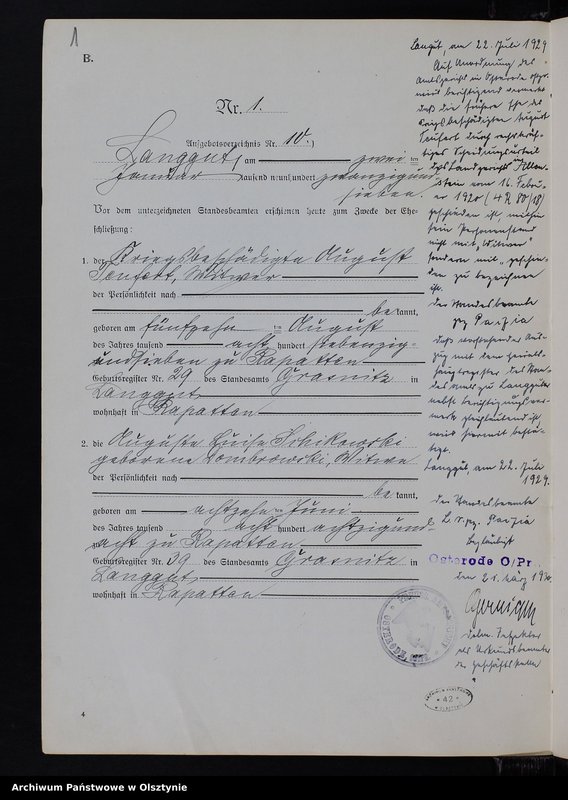 1
B.
Nr. 1.
Aufgebotsverzeichnis Nr. 10.)
Langgut, am zwei ten
Januar tausend neunhundert zwanzigund
sieben.
Vor dem unterzeichneten Standesbeamten erschienen heute zum Zwecke der Ehe-
schließung:
1. der Kriegsbeschädigte August
Teufert, Witwer
der Persönlichkeit nach
be kannt,
geboren am fünfzehn ten August
des Jahres tausend acht hundert siebenzig-
undsieben zu Rapatten
Geburtsregister Nr. 29 des Standesamts Grasnitz in
Langgut,
wohnhaft in Rapatten
2. die Auguste Luise Schikowski
geborene Dombrowski, Witwe
der Persönlichkeit nach
be kannt,
geboren am achtzehn ten Juni
des Jahres tausend acht hundert achtzigund-
acht zu Rapatten
Geburtsregister Nr. 39 des Standesamts Grasnitz in
Langgut,
wohnhaft in Rapatten
4
Langgut, am 22. Juli 1929
Auf Anordnung des
Amtsgerichts in Osterode Ostpr.
wird berichtigend vermerkt
daß die frühere Ehe des
Kriegsbeschädigten August
Teufert durch rechtskräf-
tiges Scheidungsurteil
des Landgerichts Allen-
stein vom 16. Febru-
ar 1920 (4 R 80/18)
geschieden ist, mithin
sein Personenstand
nicht mit "Witwer"
sondern mit "geschie-
den" zu bezeichnen
ist.
Der Standesbeamte
gez.
Daß vorstehender Aus-
zug mit dem Heirats-
hauptregister des Stan-
desamts zu Langgut
nebst Berichtigungsver-
merk gleichlautend ist,
wird hiermit bestä-
tigt.
Langgut, am 22. Juli
1929.
Der Standesbeamte
L.S. gez.
Beglaubigt
Osterode O/Pr.
den 21. März 1930
als Urkundsbeamter
der Geschäftsstelle
42
Archiwum Państwowe w Olsztynie